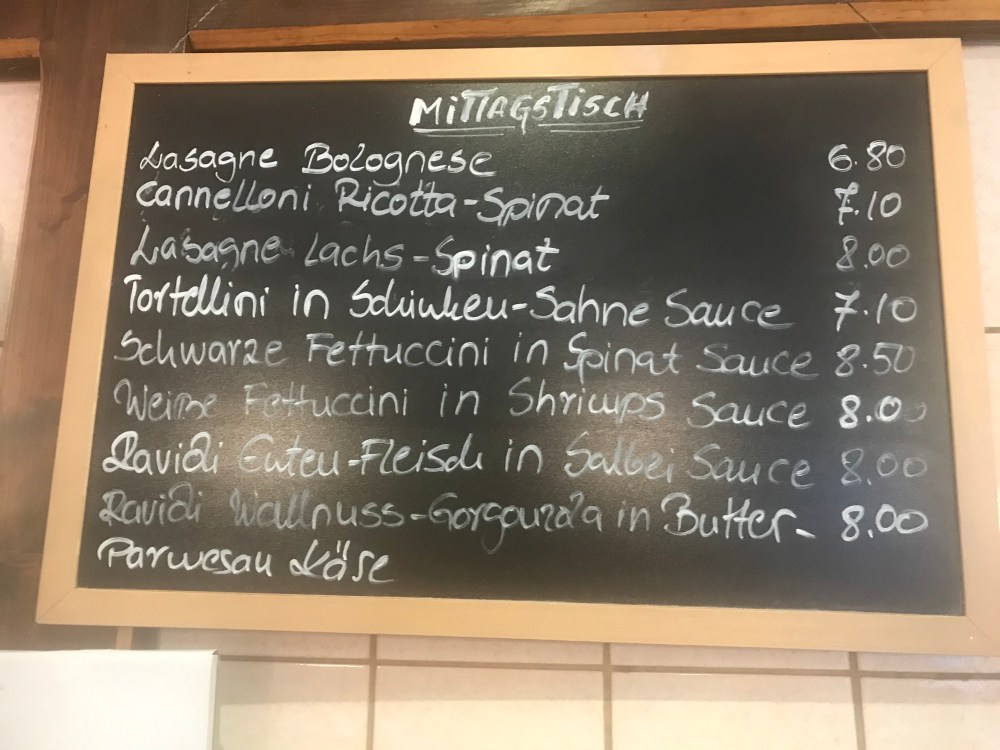 MITTAGSTISCH
Lasagne Bolognese 6.80
Cannelloni Ricotta-Spinat 7.10
Lasagne Lachs-Spinat 8.00
Tortellini in Schinken-Sahne Sauce 7.10
Schwarze Fettuccini in Spinat Sauce 8.50
Weiße Fettuccini in Shrimps Sauce 8.00
Ravioli Enten-Fleisch in Salbei Sauce 8.00
Ravioli Wallnuss-Gorgonzola in Butter- 8.00
Parmesan Käse